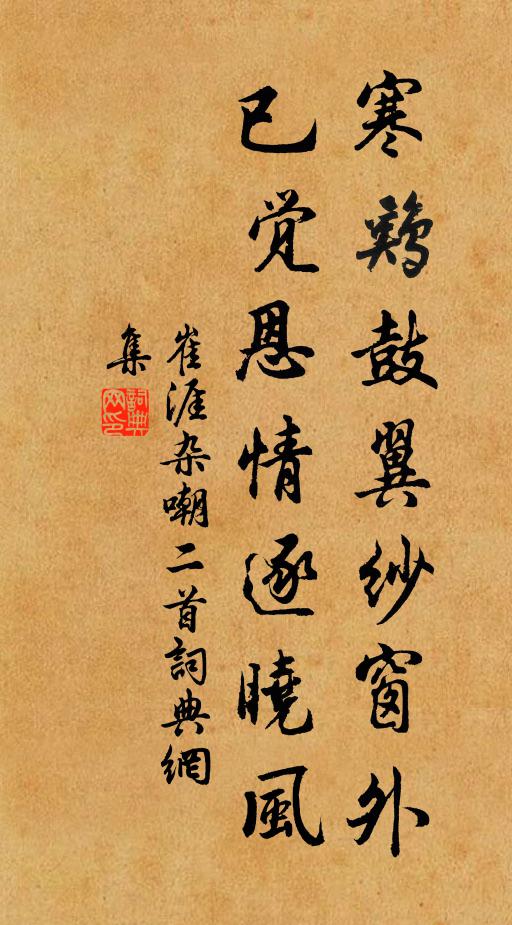 寒鷄鼓翼紗窗外
已覚恩情逐曉風
崔涯杂嘲二首詞典網
集
詞典網印